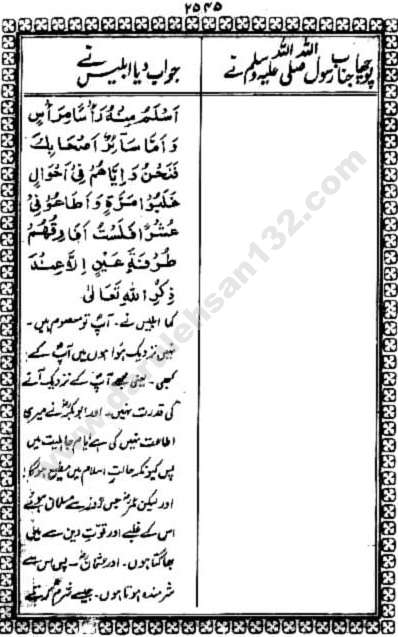 ۲۵۴۵
پوچھا جناب رسول اللہ صلی اللہ علیہ وسلم نے
جواب دیا ابلیس نے
اَسْلَمُ مِنْهُ رَأْسًا بِرَأْسٍ
وَاَمَّا سَآئِرُ اَصْحَابِكَ
فَنَحْنُ وَاِيَّاهُمْ فِیْ اَحْوَالٍ
غَلَبُوْا مَرَّةً وَاَطَاعُوْنِیْ
عَشْرًا فَلَسْتُ اُفَارِقُهُمْ
طُرْفَةَ عَيْنٍ اِلَّا عِنْدَ
ذِكْرِ اللّٰهِ تَعَالٰى
کہا ابلیس نے۔ آپؐ تو معصوم ہیں۔
نہیں نزدیک ہوا ہوں میں آپؐ کے
کبھی۔ یعنی مجھے آپؐ کے نزدیک آنے
کی قدرت نہیں۔ اور ابوبکرؓ نے میری
اطاعت نہیں کی ہے ایام جاہلیت میں
پس کیونکر حالت اسلام میں مطیع ہوگا؛
اور لیکن عمرؓ جس روز سے مسلمان ہوئے
اس کے غلبے اور قوت دین سے میں
بھاگتا ہوں۔ اور عثمانؓ۔ پس اس سے
شرمندہ ہوتا ہوں۔ جیسے شرم کرتے
www.darulehsan132.com